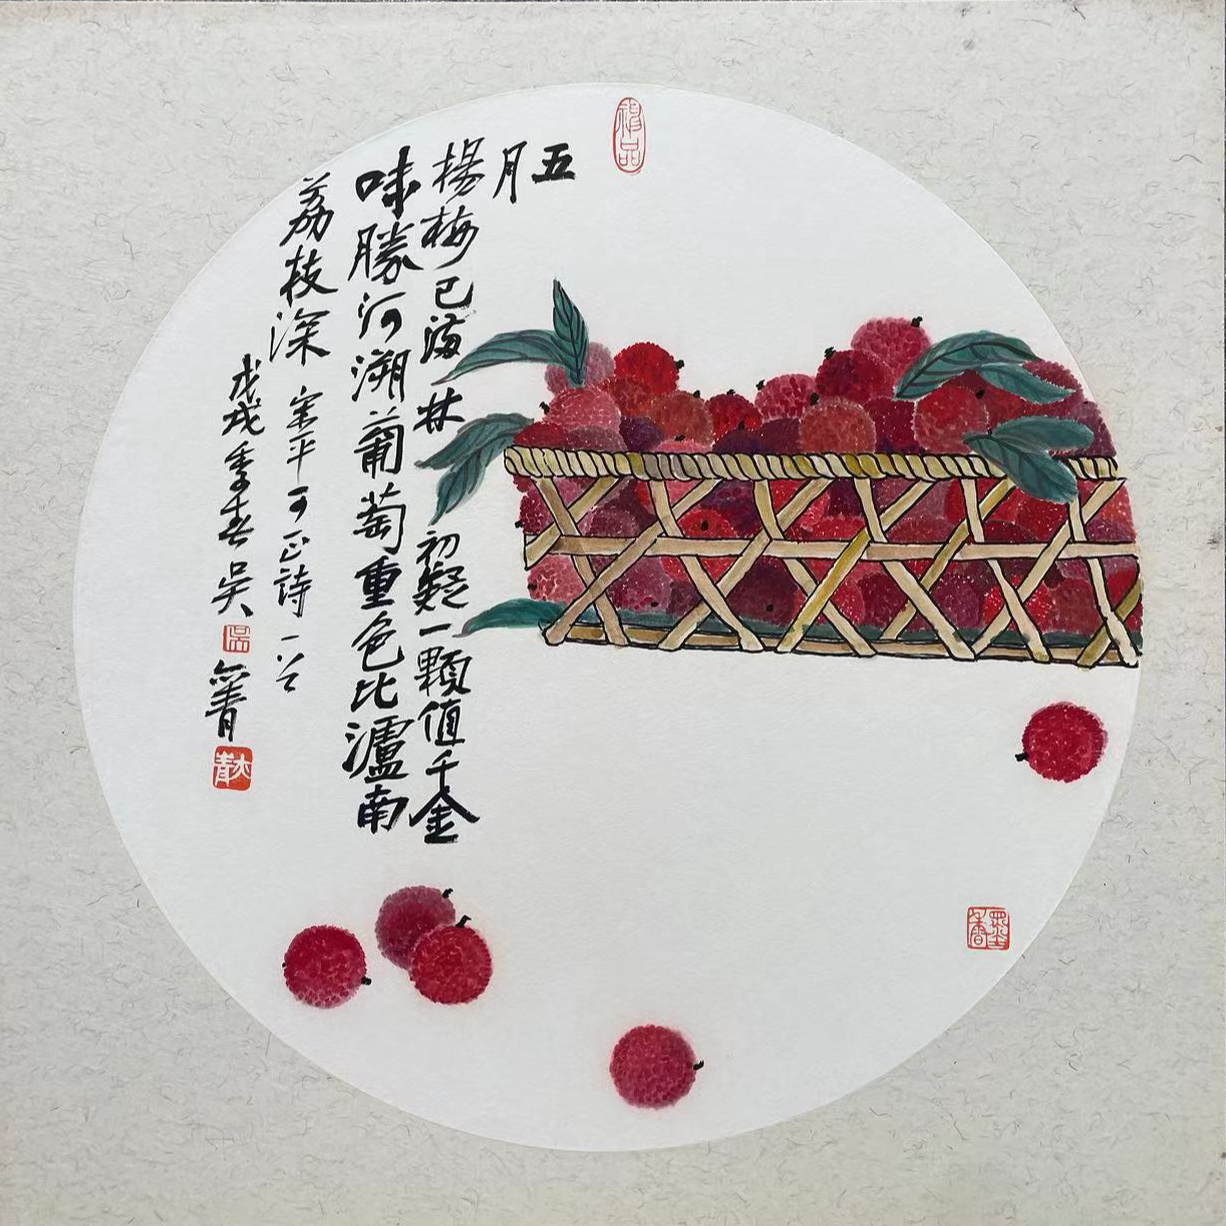 五
月
楊梅已滿林 初疑一顆值千金
味勝河溯葡萄重色比瀘南
荔枝深 宋平可正詩一首
戊戌季春 吴